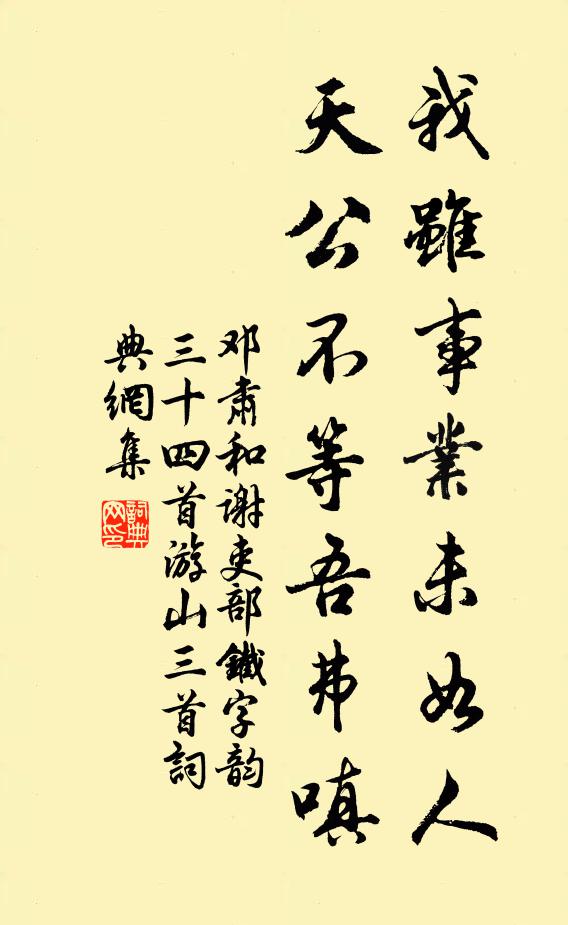 我雖事業未如人
天公不等吾弗嗔
邓肅和谢吏部鐵字韵
三十四首游山三首詞
典網集
詞典网印